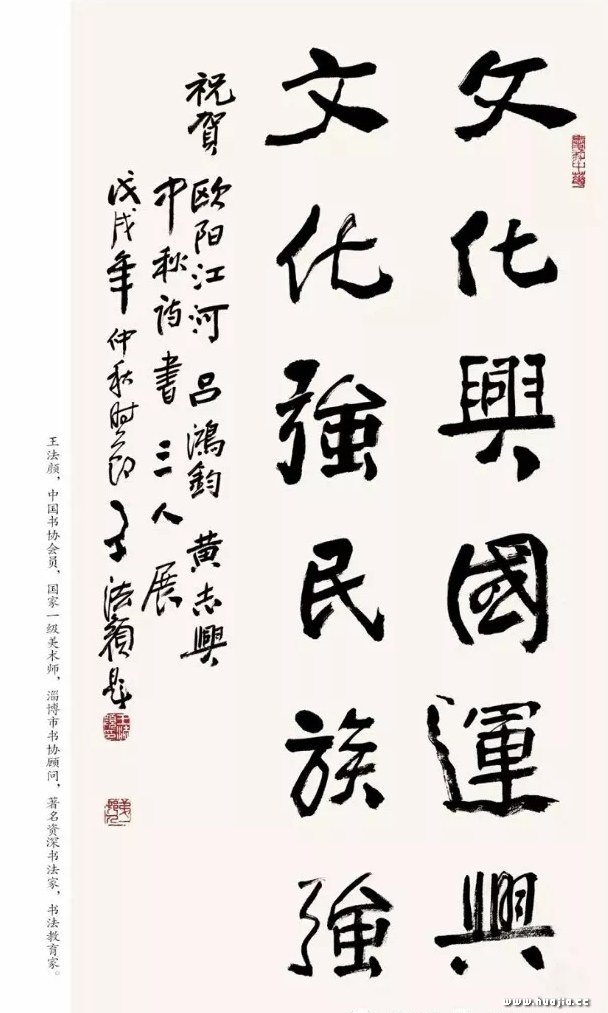 文化興國運興
文化強民族強
祝賀
欧阳江河 吕鸿鈞 黄志興
中秋诗書三人展
戊戌年仲秋时节王法颜题
王法颜，中国书协会员，国家一级美术师，淄博市书协顾问，著名资深书法家，书法教育家。
www.huajia.cc